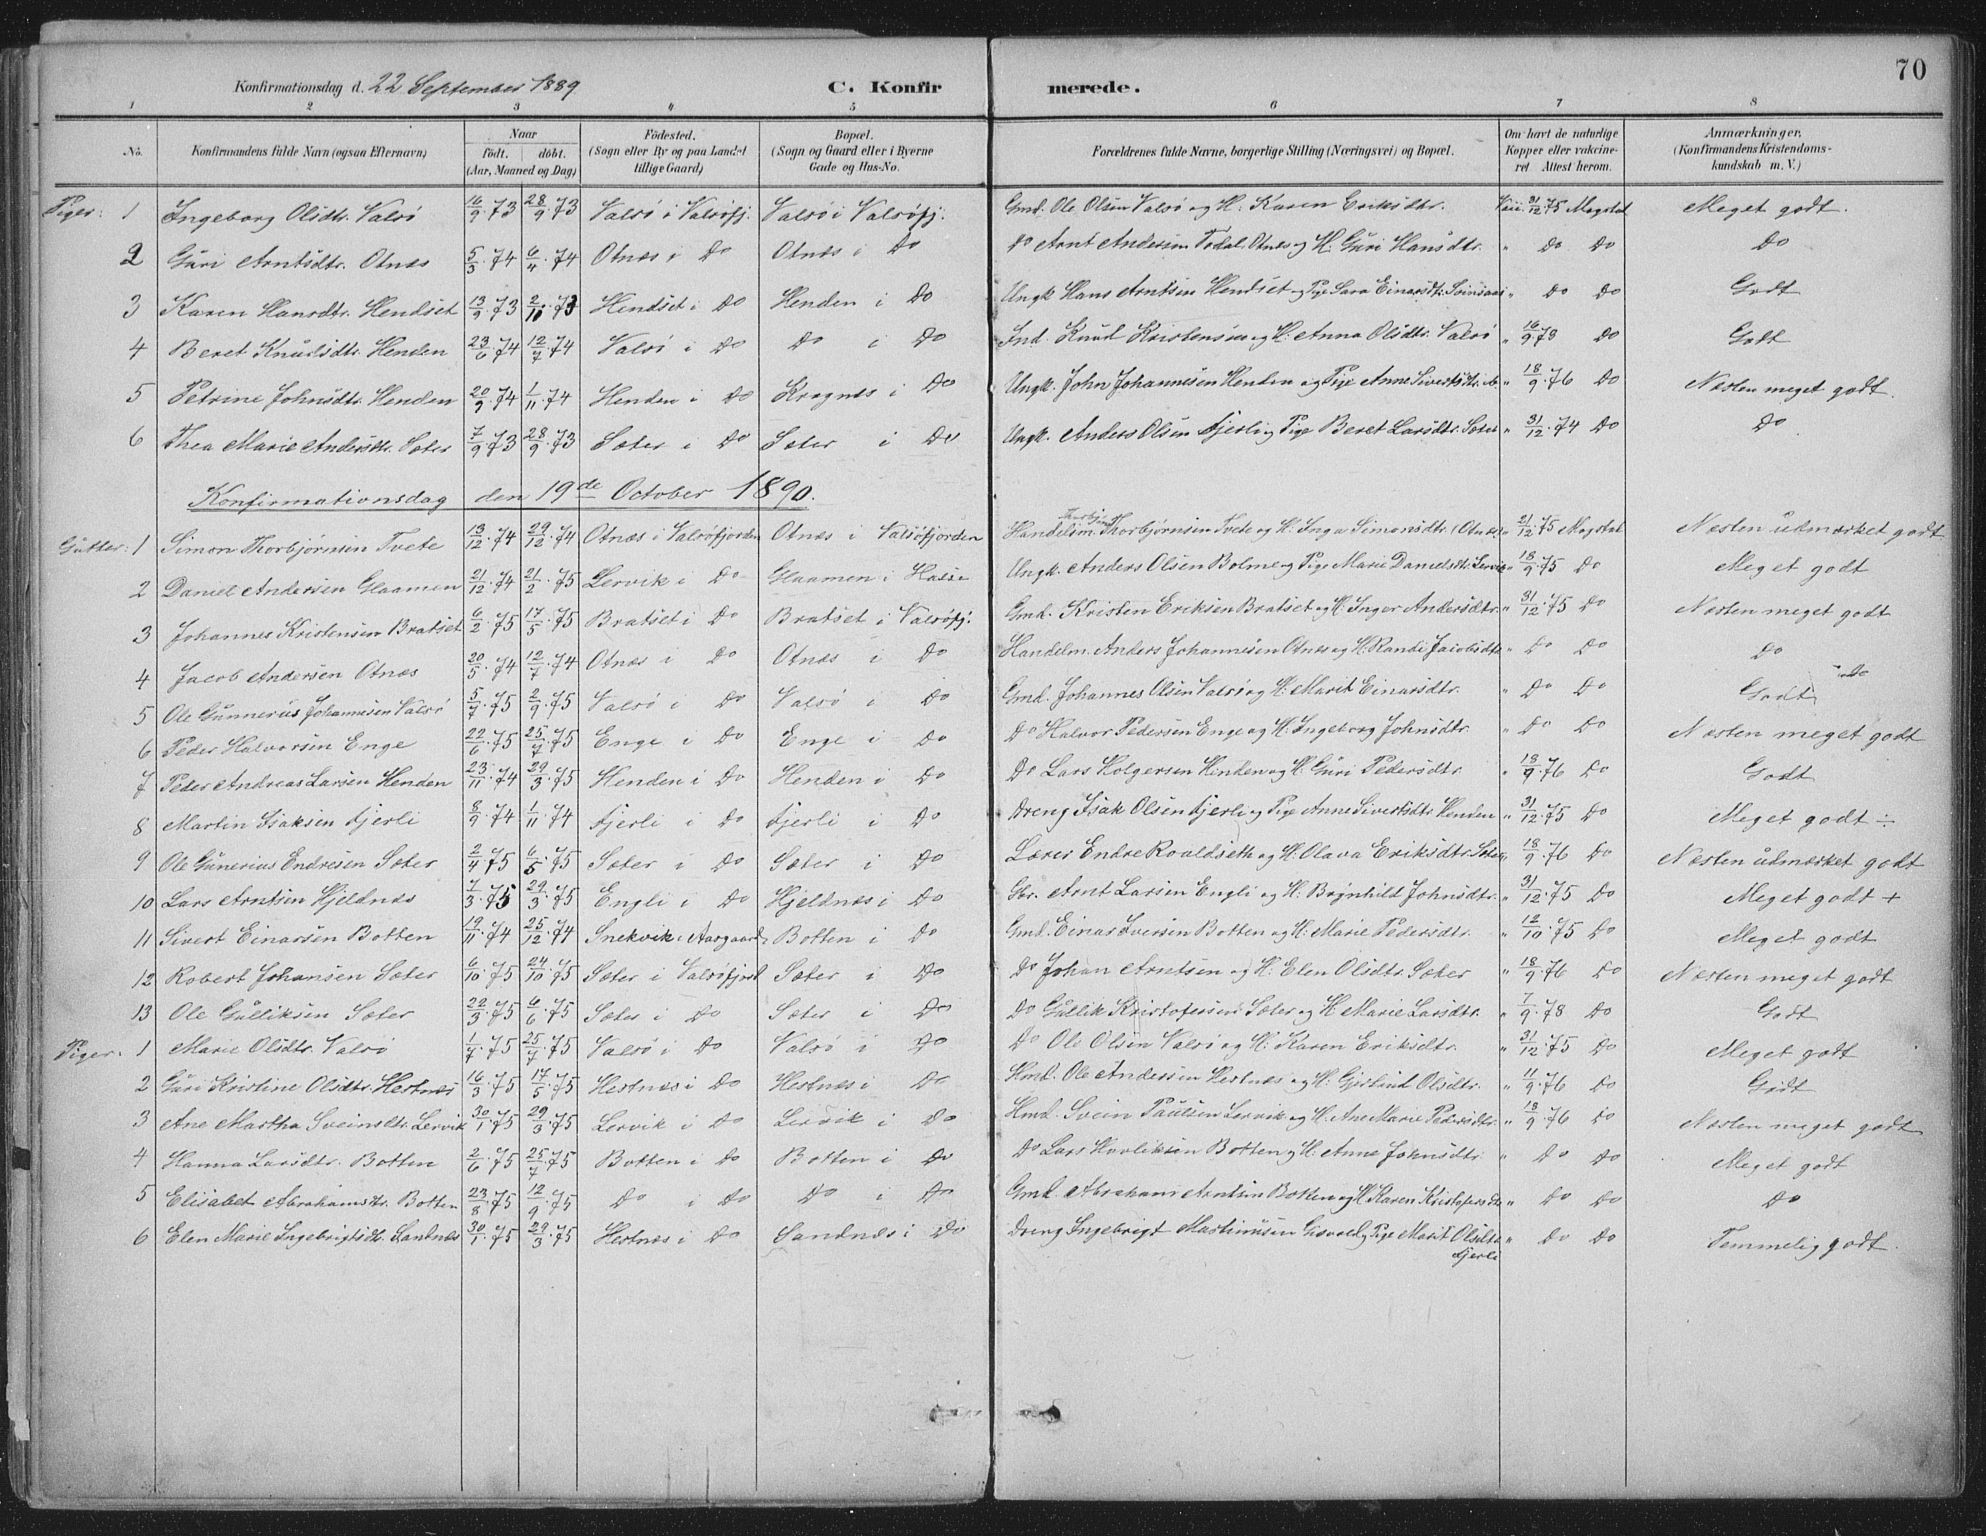 70
Konfirmationsdag d. 22 September 1889
C. Konfirmerede.
1 2 3 4 5 6 7 8
No. Konfirmandens fulde Navn (ogsaa Efternavn) Naar født. døbt. (Aar, Maaned og Dag) Födested. (Sogn eller By og paa Landet tillige Gaard) Bopæl. (Sogn og Gaard eller i Byerne Gade og Hus-No. Forældrenes fulde Navne, borgerlige Stilling (Næringsvei) og Bopæl. Om havt de naturlige Kopper eller vakcineret Attest herom. Anmærkninger. (Konfirmandens Kristendomskundskab m. V.)
Piger: 1 Ingeborg Olsdtr. Valsø 16/9.73 28/9.73 Valsø i Valsøfj. Valsø i Valsøfj. Gmd. Ole Olsen Valsø og H. Karen Eriksdtr. Vacc. 31/12.75 Magstad Meget godt.
2 Guri Arntsdtr. Otnæs 5/3.74 6/4.74 Otnæs i Do Otnæs i Do Do Arnt Andersen Todal. Otnæs og H. Guri Hansdtr. " Do Do Do
3 Karen Hansdtr. Hendset 13/9.73 2/10.73 Hendset i Do Henden i Do Ungk. Hans Arntsen Hendset og Pige Sara Einarsdtr. " Do Do Godt
4 Beret Knudsdtr. Henden 23/6.74 12/7.74 Valsø i Do Do i Do Ind. Knud Kristensen og H. Anna Olsdtr. Valsø " 16/9.78 Do Godt
5 Petrine Johnsdtr. Henden 20/9.74 1/11.74 Henden i Do Krognes i Do Ungk. John Johannesen Henden og Pige Anne Sivertsdtr. " 18/9.76 Do Næsten meget godt.
6 Thea Marie Andersdtr. Sæter 7/9.73 28/9.73 Sæter i Do Sæter i Do Ungk. Anders Olsen Fjerli og Pige Beret Larsdtr. Sæter " 31/12.74 Do Do
Konfirmationsdag den 19de October 1890.
Gutter: 1 Simon Thorbjørnsen Tvete 13/12.74 29/12.74 Otnæs i Valsøfjorden Otnæs i Valsøfjorden Handelsm Thorbjørn Thorbjørnsen Tvete og H. Inga Simonsdtr. (Otnæs " 21/12.75 Magstad Næsten udmærket godt
2 Daniel Andersen Glaamen 21/12.74 21/2.75 Lervik i Do Glaamen i Halse Ungk. Anders Olsen Bolme og Pige Marie Danielsdtr. Lervik " 18/9.75 Do Meget godt
3 Johannes Kristensen Bratset 6/2.75 17/5.75 Bratset i Do Bratset i Valsøfj. Gmd. Kristen Eriksen Bratset og H. Inger Andersdtr. " 31/12.75 Do Næsten meget godt
4 Jacob Andersen Otnæs 20/5.74 12/7.74 Otnæs i Do Otnæs i Do Handelm. Anders Johannesen Otnæs og H. Randi Jacobsdtr " Do Do Do
5 Ole Gunnerius Johannesen Valsø 5/7.75 2/9.75 Valsø i Do Valsø i Do Gmd. Johannes Olsen Valsø og H. Marit Einarsdtr. " Do Do Godt
6 Peder Halvorsen Enge 22/6.75 25/7.75 Enge i Do Enge i Do Do Halvor Pedersen Enge og H. Ingeborg Johnsdtr. " Do Do Næsten meget godt
7 Peder Andreas Larsen Henden 23/11.74 29/3.75 Henden i Do Henden i Do Do Lars Holgersen Henden og H. Guri Pedersdtr. " 18/9.76 Do Godt
8 Martin Isaksen Fjerli 8/9.74 1/11.74 Fjerli i Do Fjerli i Do Dreng Isak Olsen Fjerli og Pige Anne Sivertsdtr. Henden " 31/12.75 Do Meget godt ÷
9 Ole Gunerius Endresen Sæter 2/4.75 6/5.75 Sæter i Do Sæter i Do Lærer Endre Roaldseth og H. Olava Eriksdtr. Sæter " 18/9.76 Do Næsten udmærket godt
10 Lars Arntsen Hjeldnæs 7/3.75 29/3.75 Engli i Do Hjeldnæs i Do Gbr. Arnt Larsen Engli og H. Brynhild Johnsdtr. " 31/12.75 Do Meget godt +
11 Sivert Einarsen Botten 19/11.74 25/12.74 Snekvik i Aasgaard Botten i Do Gmd. Einar Iversen Botten og H. Marie Pedersdtr. " 12/10.75 Do Meget godt
12 Robert Johansen Sæter 6/10.75 24/10.75 Sæter i Valsøfjord Sæter i Do Do Johan Arntsen og H. Elen Olsdtr. Sæter " 18/9.76 Do Næsten meget godt
13 Ole Gulliksen Sæter 22/3.75 6/6.75 Sæter i Do Sæter i Do Do Gullik Kristofersen Sæter og H Marie Larsdtr. " 7/9.78 Do Godt
Piger: 1 Marie Olsdtr. Valsø 1/7.75 25/7.75 Valsø i Do Valsø i Do Do Ole Olsen Valsø og H. Karen Eriksdtr. " 31/12.75 Do Meget godt
2 Guri Kristine Olsdtr. Hestnæs 16/3.75 17/5.75 Hestnæs i Do Hestnæs i Do Hmd. Ole Andersen Hestnæs og H. Gjertrud Olsdtr. " 11/9.76 Do Godt
3 Ane Martha Sveinsdtr. Lervik 30/1.75 29/3.75 Lervik i Do Lervik i Do Hmd. Svein Paulsen Lervik og H. Ane Marie Pedersdtr. " 18/9.76 Do Næsten meget godt
4 Hanna Larsdtr. Botten 2/6.75 25/7.75 Botten i Do Botten i Do Do Lars Botten og H. Anne Johnsdtr. " Do Do Meget godt
5 Elisabet Abrahamsdtr. Botten 23/8.75 12/9.75 Do i Do Do i Do Gmd. Abraham Arntsen Botten og H Karen Kristofersdtr " Do Do Do
6 Elen Marie Ingebrigtsdtr. Sandnæs 30/1.75 29/3.75 Hestnæs i Do Sandnæs i Do Dreng Ingebrigt Martinusen og Pige Marit Olsdtr Fjerli " Do Do Temmelig godt.